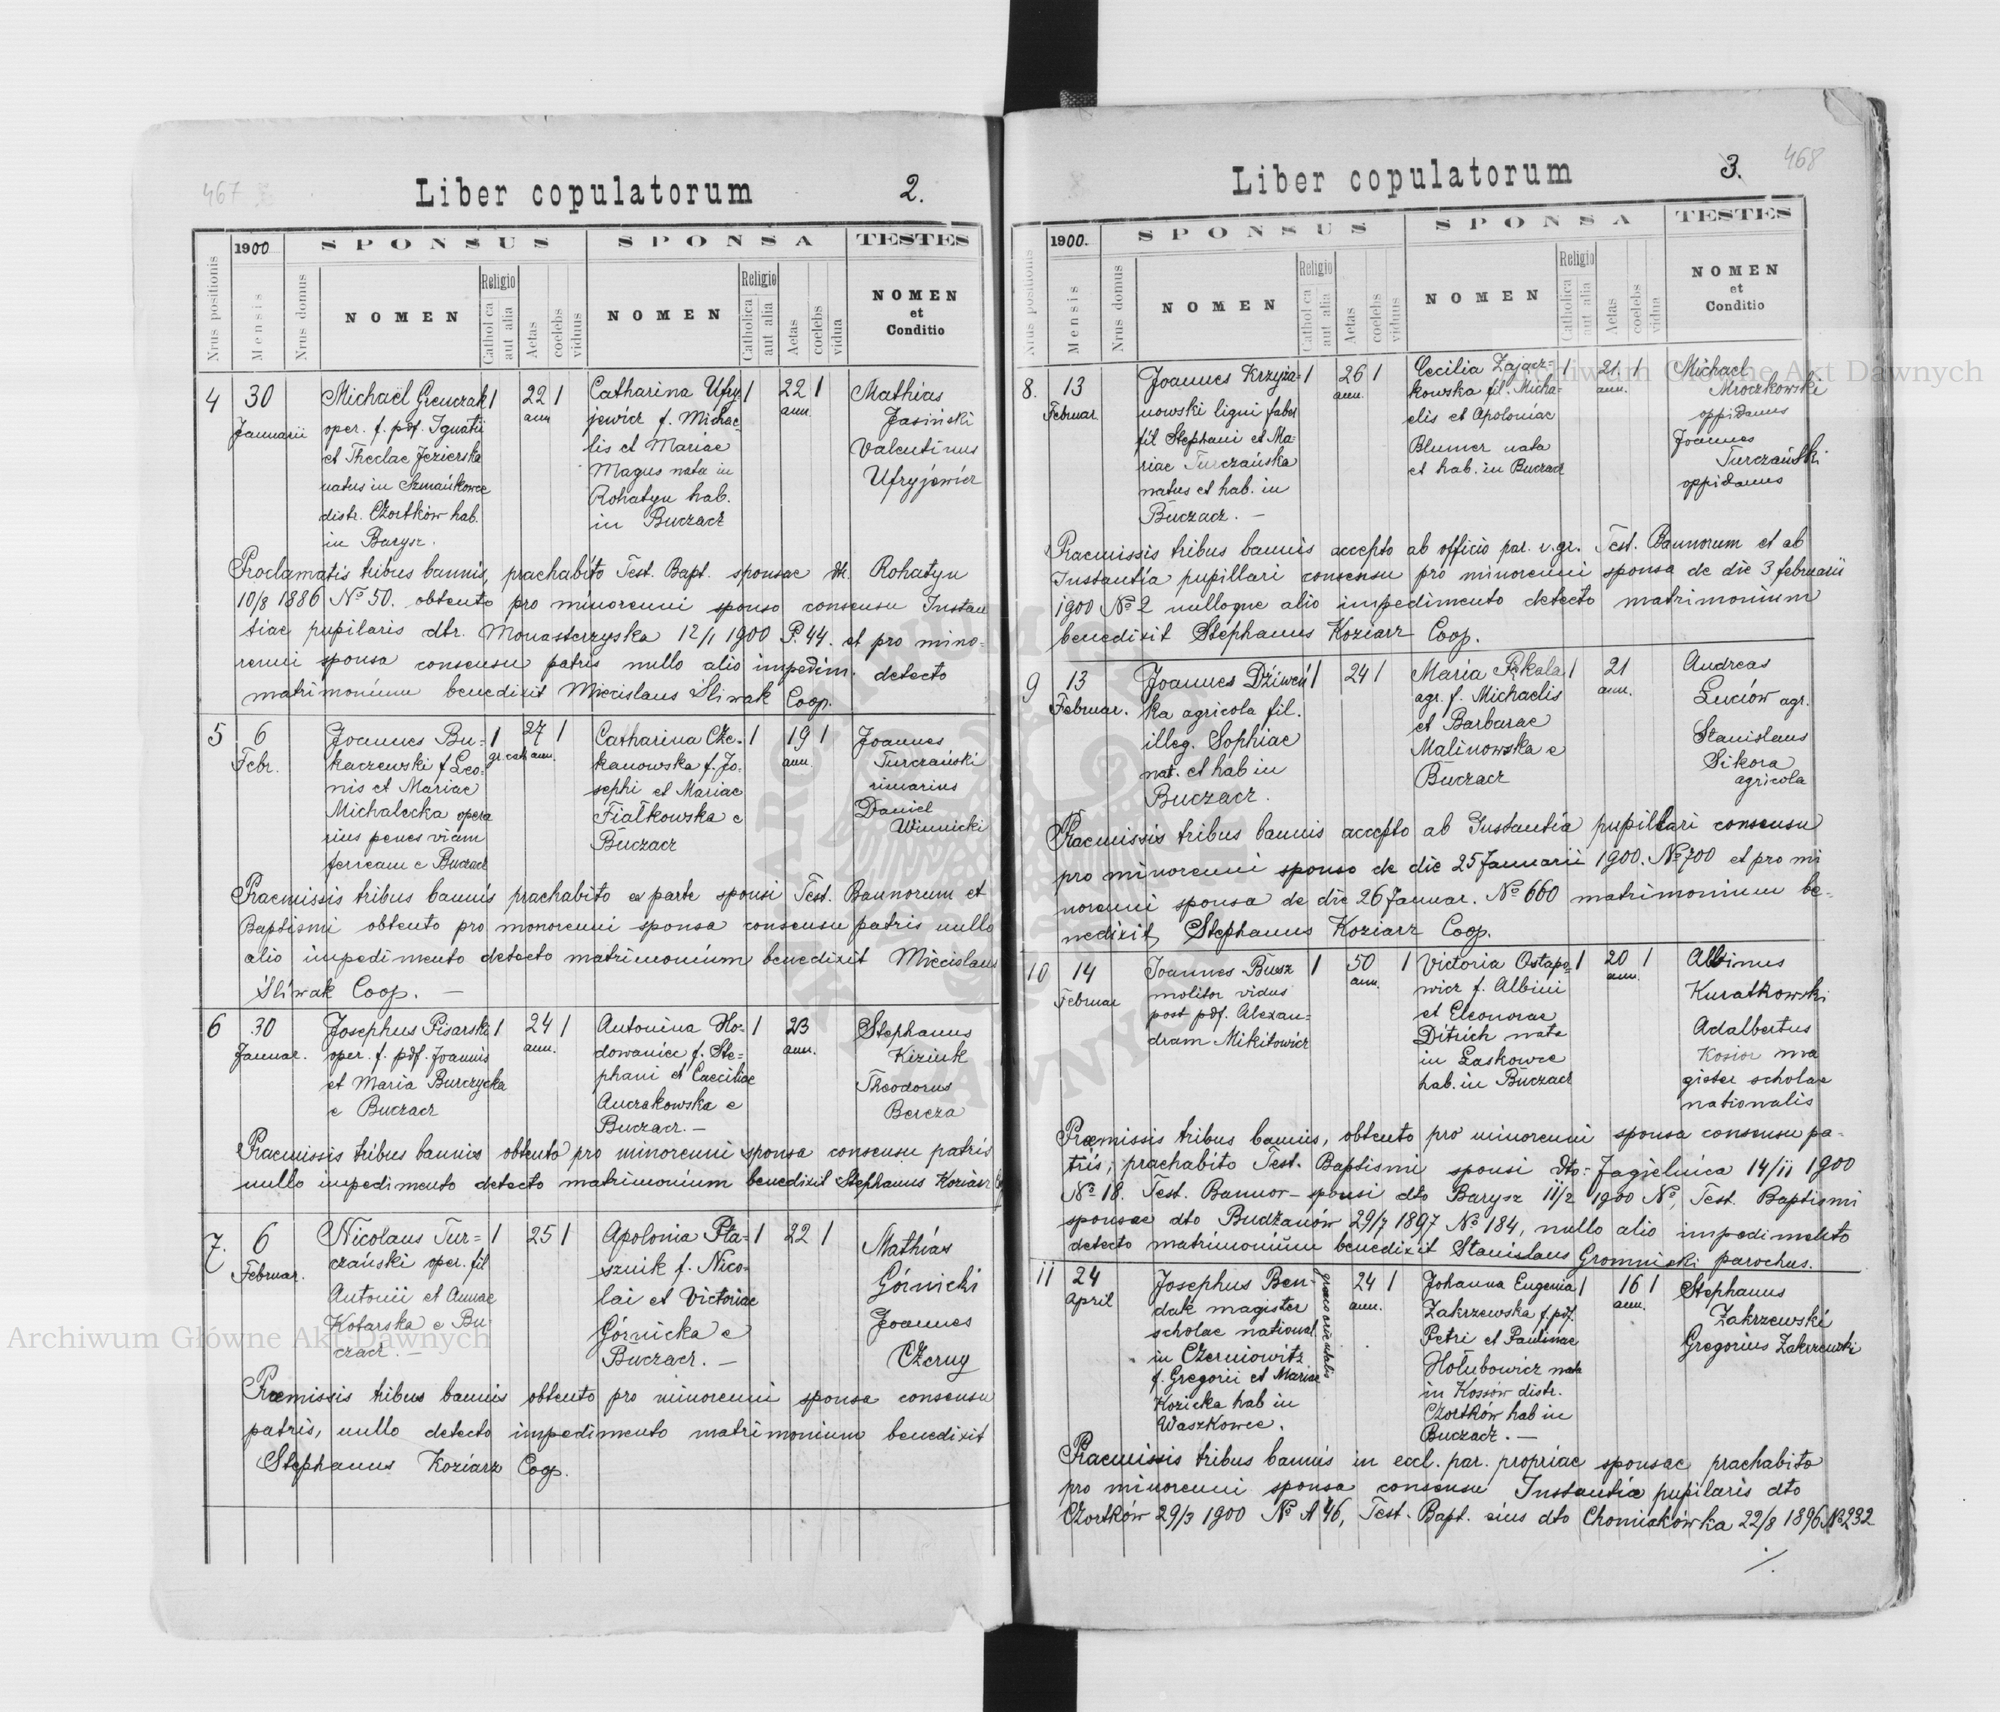 467
Liber copulatorum
2.
Nrus positionis
1900
Mensis
Nrus domus
SPONSUS
NOMEN
Religio
Catholica
aut alia
Aetas
coelebs
viduus
SPONSA
NOMEN
Religio
Catholica
aut alia
Aetas
coelebs
vidua
TESTES
NOMEN
et
Conditio
4
30
Januarii
Michaël Grenczak
oper. f. pdf. Ignatii
et Theclae Jezierska
natus in Szmańkowce
distr. Czortków hab.
in Barysz.
1
22
ann
1
Catharina Ufry
jewicz f. Michae-
lis et Mariae
Magus nata in
Rohatyn hab.
in Buczacz
1
22
ann.
1
Mathias
Jasiński
Valentinus
Ufryjewicz
Proclamatis tribus bannis, praehabito Test. Bapt. sponsae dt. Rohatyn
10/8 1886 No 50. obtento pro minorenni sponso consensu Instan
tiae pupilaris dtr. Monasterzyska 12/1 1900 P. 44. et pro mino-
renni sponsa consensu patris nullo alio impedim. detecto
matrimonium benedixit Miecislaus Śliwak Coop.
5
6
Febr.
Joannes Bu-
kaczewski f. Leo-
nis et Mariae
Michalecka opera
rius penes viam
ferream e Buczacz
1
gr. cath
27
ann.
1
Catharina Cze-
kanowska f. Jo-
sephi et Mariae
Fiałkowska e
Buczacz
1
19
ann.
1
Joannes
Turczański
rimarius
Daniel
Winnicki
Praemissis tribus bannis praehabito ex parte sponsi Test. Bannorum et
Baptismi obtento pro monorenni sponsa consensu patris nullo
alio impedimento detecto matrimonium benedixit Miecislaus
Śliwak Coop. —
6
30
Januar.
Josephus Pisarski
oper. f. pdf. Joannis
et Maria Burczycka
e Buczacz
1
24
ann.
1
Antonina Ho-
dowaniec f. Ste-
phani et Caeciliae
Auczakowska e
Buczacz. —
1
23
ann.
Stephanus
Kiziuk
Theodorus
Bereza
Praemissis tribus bannis obtento pro minorenni sponsa consensu patris
nullo impedimento detecto matrimonium benedixit Stephanus Koziarz
7.
6
Februar.
Nicolaus Tur-
czański oper. fil
Antonii et Annae
Kotarska e Bu-
czacz. —
1
25
1
Apolonia Pta-
sznik f. Nico-
lai et Victoriae
Górnicka e
Buczacz. —
1
22
1
Mathias
Górnicki
Joannes
Czerny
Praemissis tribus bannis obtento pro minorenni sponsa consensu
patris, nullo detecto impedimento matrimonium benedixit
Stephanus Koziarz Coop.
468
Liber copulatorum
3.
Nrus positionis
1900.
Mensis
Nrus domus
SPONSUS
NOMEN
Religio
Catholica
aut alia
Aetas
coelebs
viduus
SPONSA
NOMEN
Religio
Catholica
aut alia
Aetas
coelebs
vidua
TESTES
NOMEN
et
Conditio
8.
13
Februar
Joannes Krzyża-
nowski ligni faber
fil Stephani et Ma-
riae Turczańska
natus et hab. in
Buczacz. —
1
26
ann.
1
Cecilia Zającz-
kowska fil. Micha-
elis et Apoloniae
Blumer nata
et hab. in Buczacz
1
21.
ann.
1
Michael
Mroczkowski
oppidanus
Joannes
Turczański
oppidanus
Praemissis tribus bannis accepto ab officio par. r. gr. Test. Bannorum et ab
Instantia pupillari consensu pro minorenni sponsa de die 3 februarii
1900 No 2 nulloque alio impedimento detecto matrimonium
benedixit Stephanus Koziarz Coop.
9
13
Februar.
Joannes Dziweń
ka agricola fil.
illeg. Sophiae
nat. et hab in
Buczacz.
1
24
1
Maria Pękala
agr. f. Michaelis
et Barbarae
Malinowska e
Buczacz
1
21
ann.
Andreas
Luciów agr.
Stanislaus
Sikora
agricola
Praemissis tribus bannis accepto ab Instantia pupillari consensu
pro minorenni sponso de die 25 Januarii 1900. No 700 et pro mi
norenni sponsa de die 26 Januar. No 660 matrimonium be-
nedixit Stephanus Koziarz Coop.
10
14
Februar
Joannes Busz
molitor vidus
post pdf. Alexan-
dram Mikitowicz
1
50
ann.
1
Victoria Ostapo-
wicz f. Albini
et Eleonorae
Ditrich nata
in Laskowce
hab. in Buczacz
1
20
ann.
1
Albinus
Kuratkowski
Adalbertus
Kosior ma
gister scholae
nationalis
Praemissis tribus bannis, obtento pro minorenni sponsa consensu pa-
tris, praehabito Test. Baptismi sponsi dto- Jagielnica 14/11 1900
No 18. Test. Bannor- sponsi dto Barysz 11/2 1900 No, Test. Baptismi
sponsae dto Budzanów 29/7 1897 No 184, nullo alio impedimento
detecto matrimonium benedixit Stanislaus Gromnicki parochus.
11
24
April
Josephus Ben-
dak magister
scholae national.
in Czerniowitz
f. Gregorii et Mariae
Kozicka hab in
Waszkowce.
graeco orientalis
24
ann.
1
Johanna Eugenia
Zakrzewska f. pdf.
Petri et Paulinae
Hołubowicz nata
in Kossów distr.
Czortków hab in
Buczacz. —
1
16
ann.
1
Stephanus
Zakrzewski
Gregorius Zakrzewski
Praemissis tribus bannis in eccl. par. propriae sponsae praehabito
pro minorenni sponsa consensu Instantia pupilaris dto
Czortków 29/3 1900 No A 46, Test. Bapt. eius dto Chomiakówka 22/8 1896 No 232
./.
Archiwum Główne Akt Dawnych
Archiwum Główne Akt Dawnych